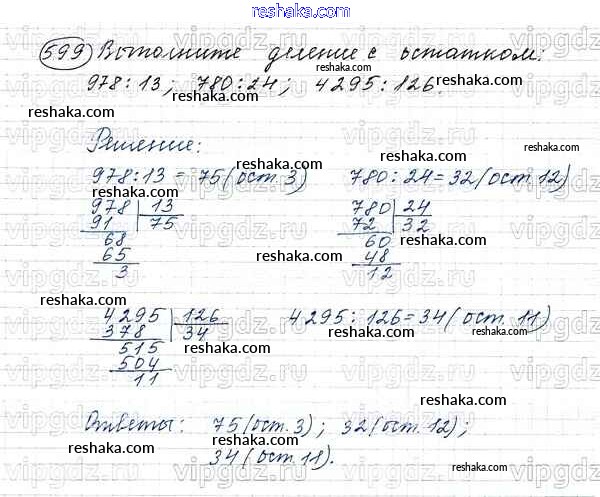 reshaka.com
599 Выполните деление с остатком:
reshaka.com
978:13; 780:24; 4295:126.
reshaka.com reshaka.com
Решение:
reshaka.com reshaka.com
978:13 = 75(ост.3) 780:24=32(ост.12)
978 13 780 24
91 75 72 32
68 60
65 48
3 12
reshaka.com reshaka.com
reshaka.com reshaka.com
4295 126 4295:126=34(ост.11)
378 34
515
504
11
reshaka.com reshaka.com
reshaka.com
Ответы: 75(ост.3); 32(ост.12);
reshaka.com reshaka.com
34(ост.11).
reshaka.com